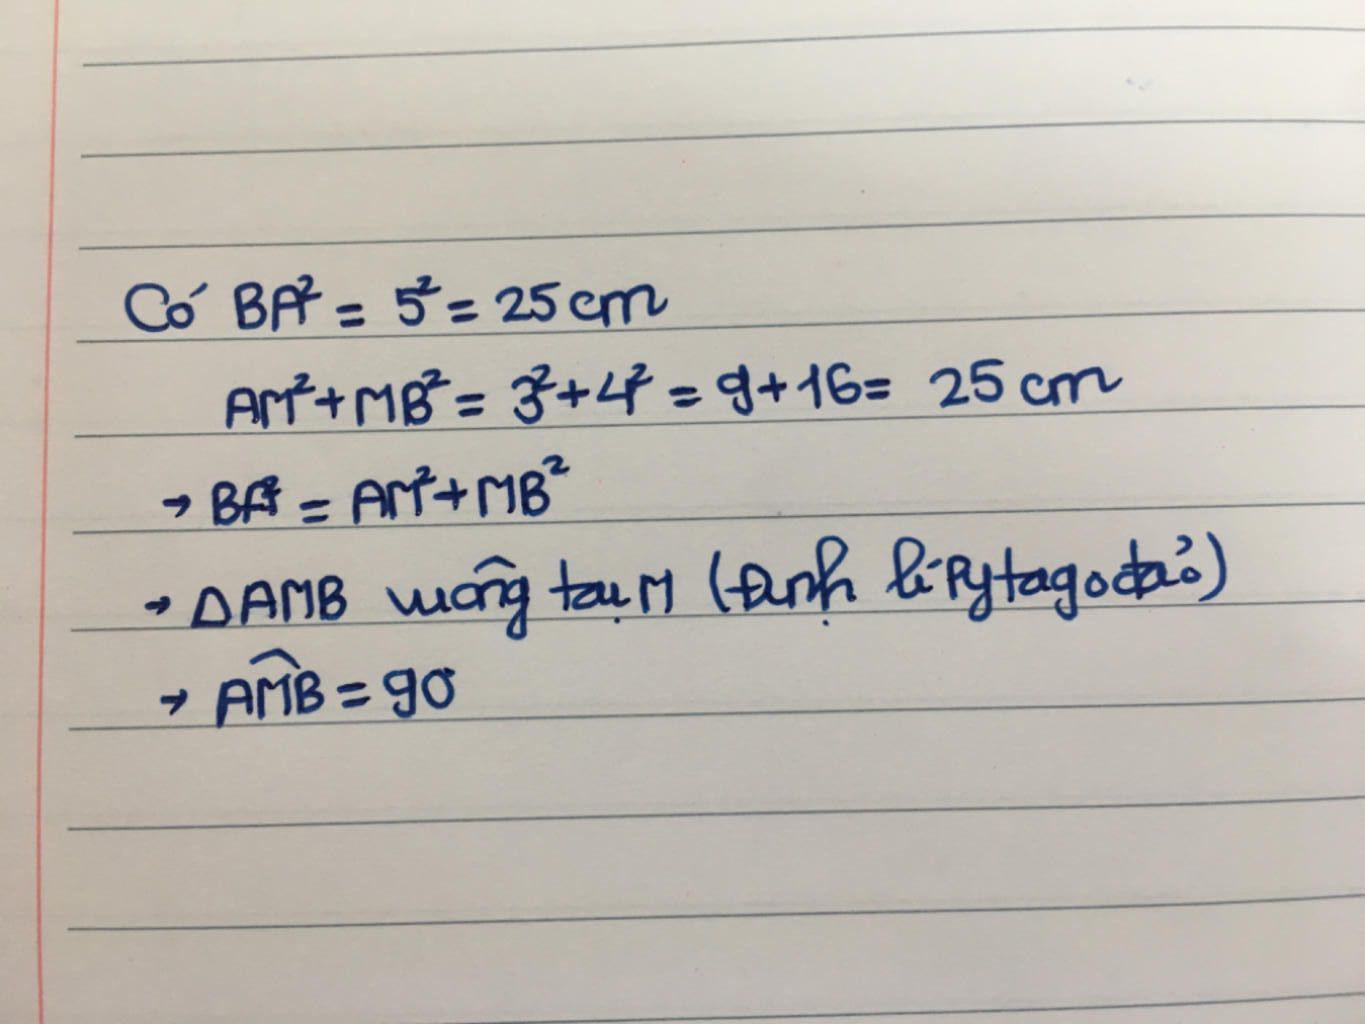 Có BA² = 5² = 25 cm
AM² + MB² = 3² + 4² = 9 + 16 = 25 cm
→ BA² = AM² + MB²
→ ΔAMB vuông tại M (Định lí Pytago đảo)
→ \widehat{AMB} = 90